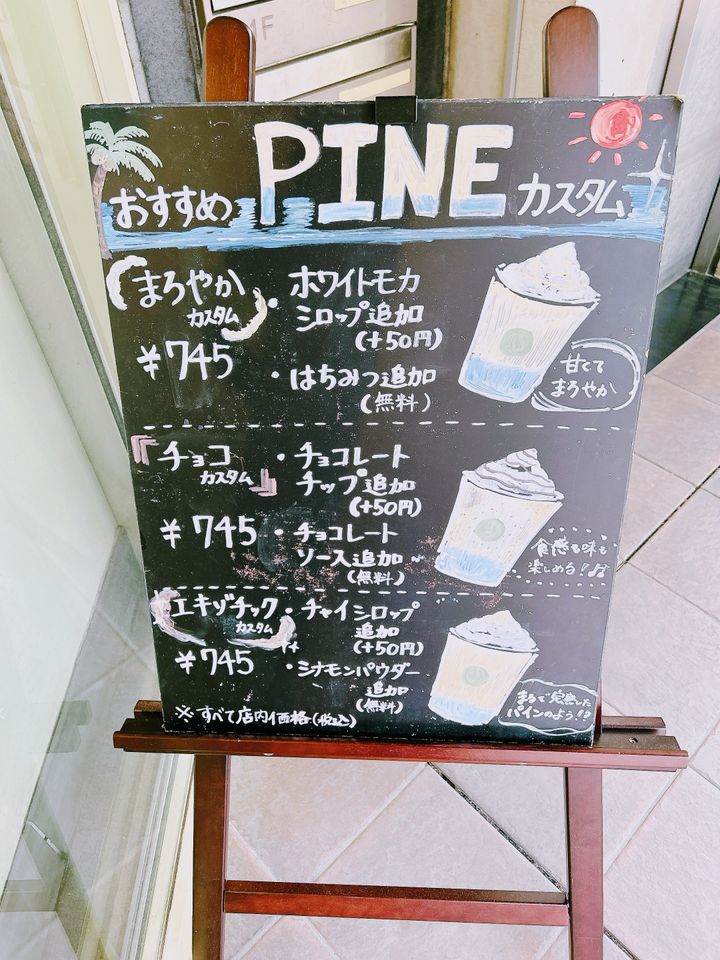 1F
おすすめ PINE カスタム
まろやか
カスタム
¥745
・ホワイトモカ
シロップ追加
(+50円)
・はちみつ追加
(無料)
甘くて
まろやか
チョコ
カスタム
¥745
・チョコレート
チップ追加
(+50円)
・チョコレート
ソース追加
(無料)
食感も味も
楽しめる!♫
エキゾチック
カスタム
¥745
・チャイシロップ
追加
(+50円)
・シナモンパウダー
追加
(無料)
まるで完熟した
パインのよう!?
※すべて店内価格(税込)